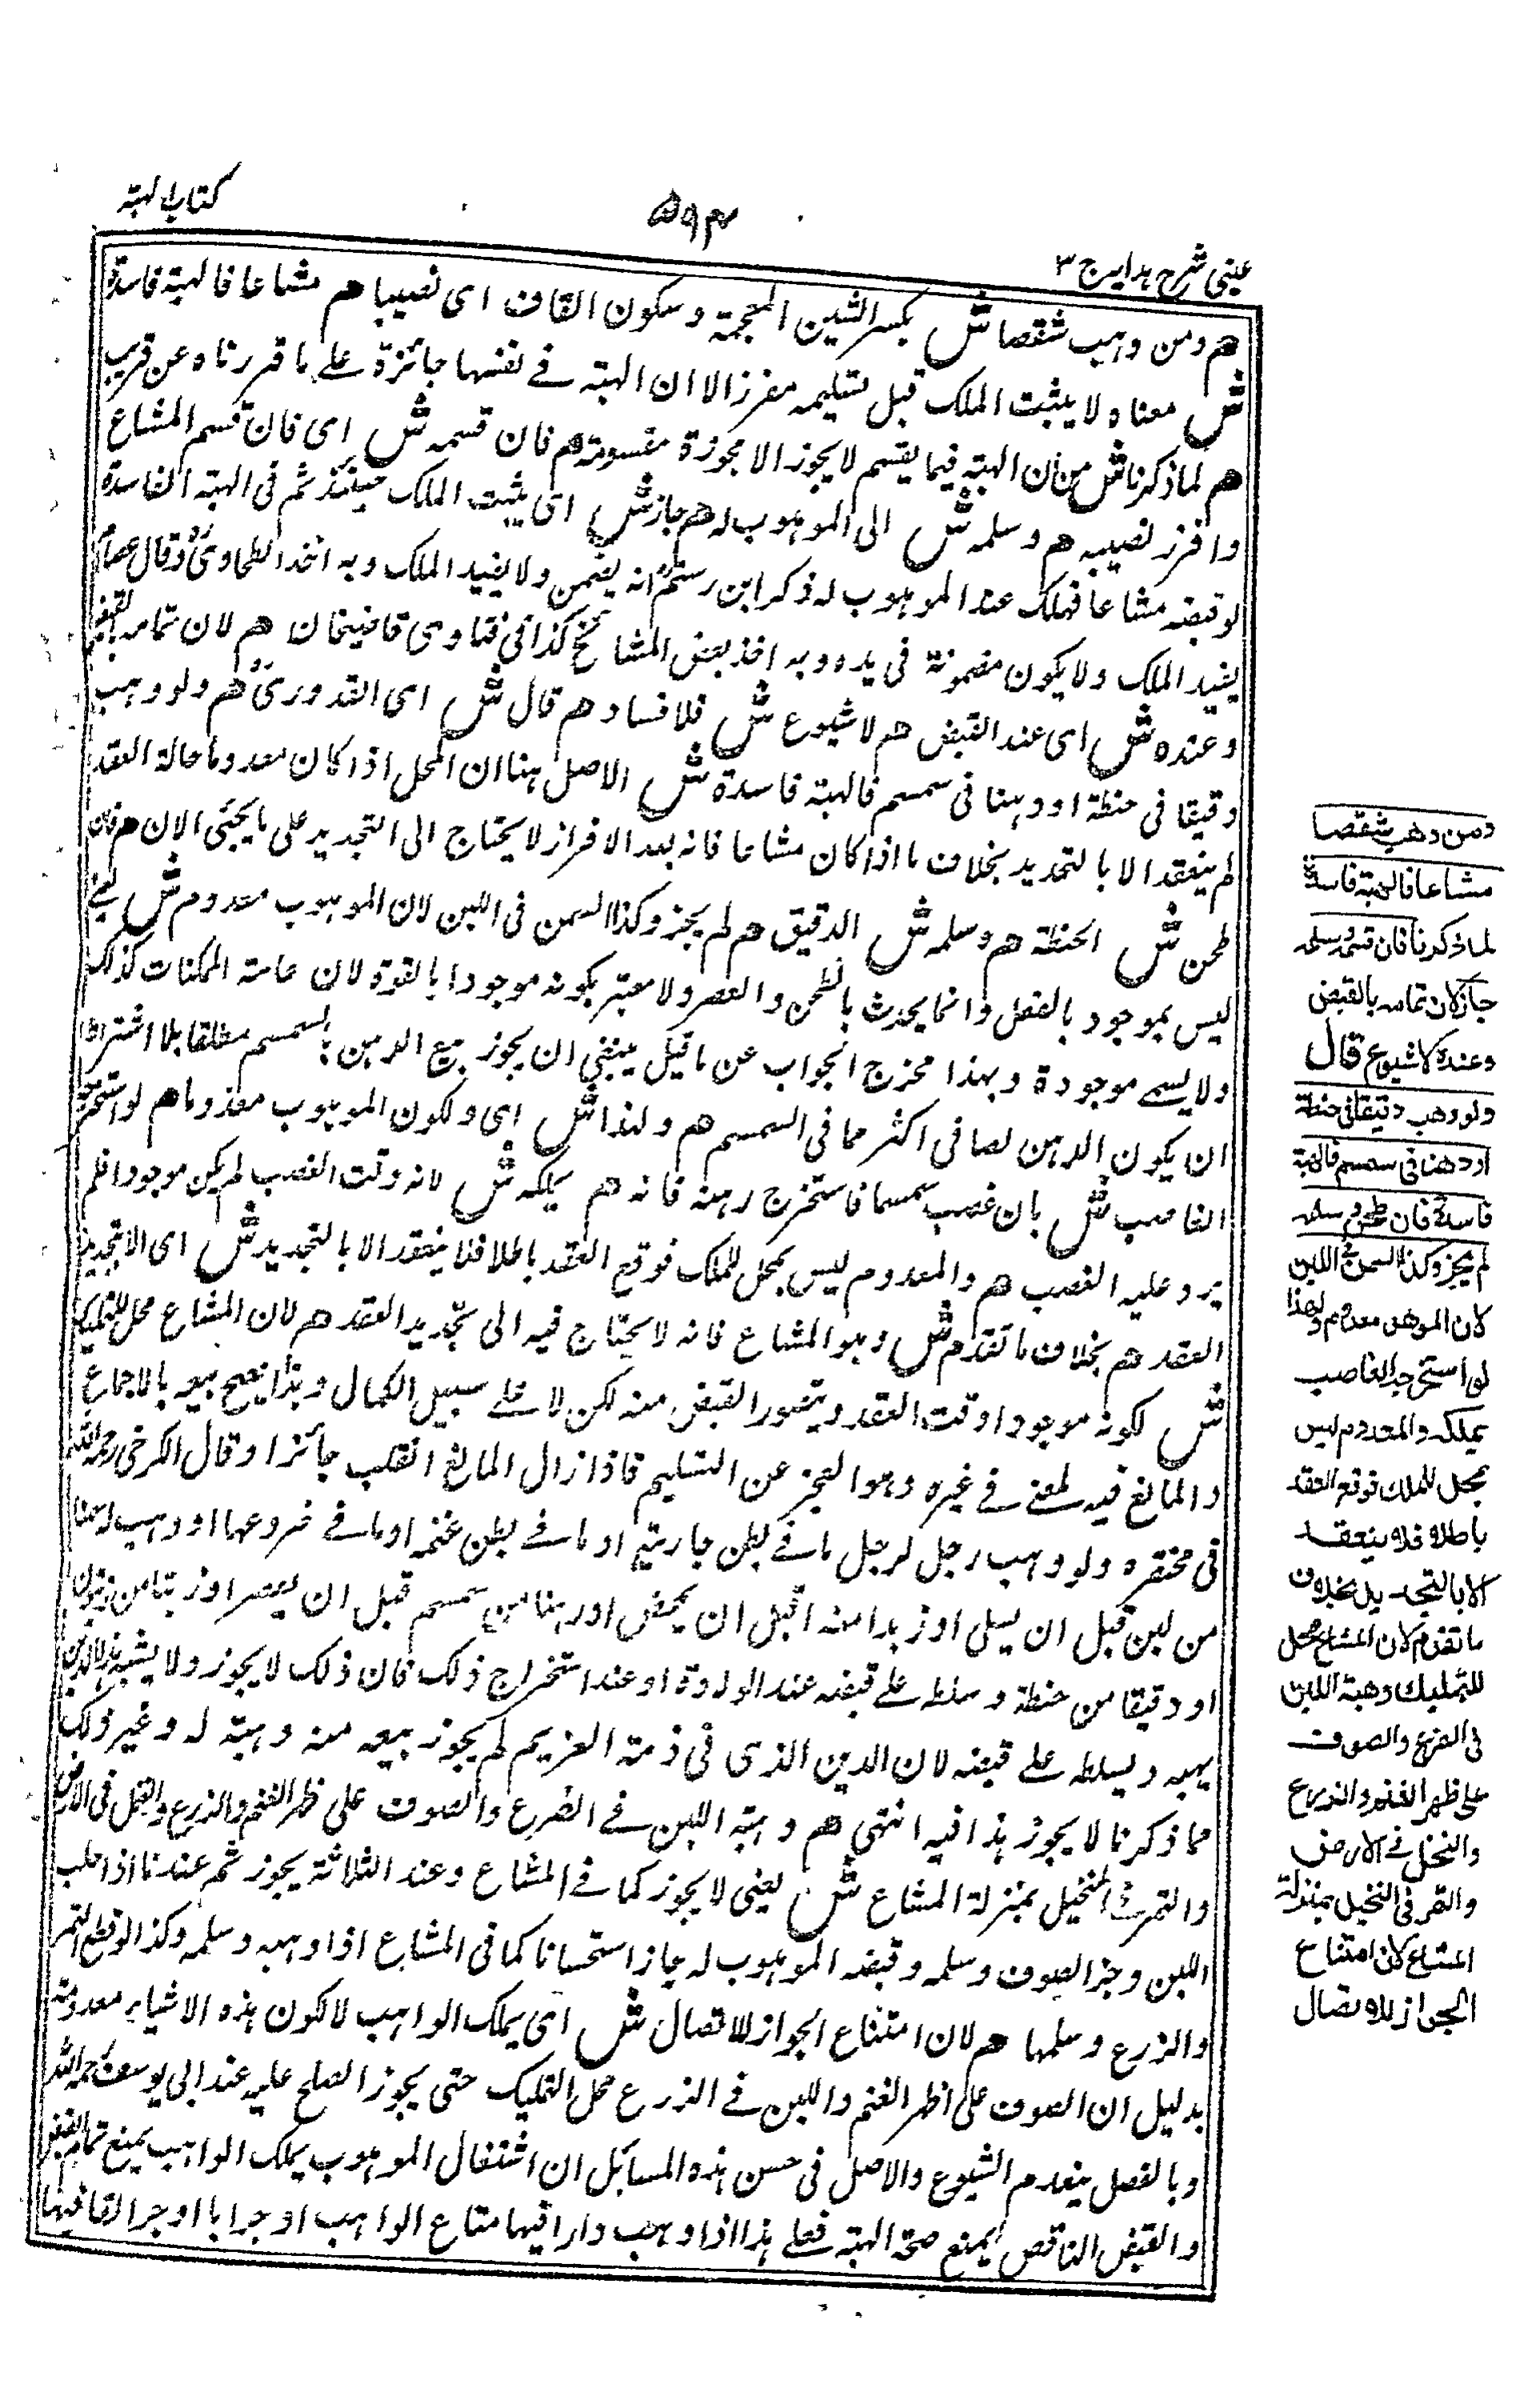 كتاب الهبة
٥٩٣
عینی شرح ہدایہ ج ٣
هم ومن وهب شقصا ش بكسر الشين المعجمة وسكون القاف اى نصيبا هم مشاعا فالهبة فاسدة
ش معناه لا يثبت الملك قبل تسليمه مفرزا لا ان الهبة فى نفسها جائزة على ما قررناه عن قريب
هم لما ذكرنا ش من ان الهبة فيما يقسم لا يجوز الا محوزة مقسومة هم فان قسمه ش اى فان قسم المشاع
وافرز نصيبه هم وسلمه ش الى الموهوب له هم جاز ش اى يثبت الملك حينئذ ثم فى الهبة الفاسدة
لو قبضه مشاعا فهلك عند الموهوب له ذكر ابن رستم انه يضمن ولا يفيد الملك وبه اخذ الطحاوى وقال عصام
يفيد الملك ولا يكون مضمونة فى يده وبه اخذ بعض المشائخ كذا فى فتاوى قاضيخان هم لان تمامه بالقبض
وعنده ش اى عند القبض هم لا شيوع ش فلا فساد هم قال ش اى القدورى هم ولو وهب
دقيقا فى حنطة او دهنا فى سمسم فالهبة فاسدة ش الاصل هنا ان المحل اذا كان معدوما حالة العقد
لم ينعقد الا بالتجديد بخلاف ما اذا كان مشاعا فانه بعد الافراز لا يحتاج الى التجديد على ما يجئى الان هم فان
طحن ش الحنطة هم وسلمه ش الدقيق هم لم يجز وكذا السمن فى اللبن لان الموهوب معدوم ش يعنى
ليس بموجود بالفعل وانما يحدث بالطحن والعصر ولا معتبر بكونه موجودا بالقوة لان عامة الممكنات كذلك
ولا يسمى موجودة وبهذا مخرج الجواب عن ما قيل ينبغى ان يجوز بيع الدهن بالسمسم مطلقا بلا اشتراط
ان يكون الدهن لصافى اكثر مما فى السمسم هم ولهذا ش اى ولكون الموهوب معدوما هم لو استخرجه
الغاصب ش بان غصب سمسما فاستخرج دهنه فانه هم يملكه ش لانه وقت الغصب لم يكن موجودا فلم
يرد عليه الغصب هم والمعدوم ليس بمحل للملك فوقع العقد باطلا فلا ينعقد الا بالتجديد ش اى الا بتجديد
العقد هم بخلاف ما تقدم ش وهو المشاع فانه لا يحتاج فيه الى تجديد العقد هم لان المشاع محل للتمليك
ش لكونه موجودا وقت العقد ويتصور القبض منه لكن لا على سبيل الكمال وبهذا يصح بيعه بالاجماع
والمانع فيه لمعنى فى غيره وهو العجز عن التسليم فاذا زال المانع انقلب جائزا وقال الكرخى رحمه الله
فى مختصره ولو وهب رجل لرجل ما فى بطن جاريته او ما فى بطن غنمه او ما فى ضروعها او وهب له سمنا
من لبن قبل ان يسلى او زبدا منه قبل ان يمخض او دهنا من سمسم قبل ان يعصر او زيتا من زيتون
او دقيقا من حنطة وسلطه على قبضه عند الولادة او عند استخراج ذلك فان ذلك لا يجوز ولا يشبه هذا الدين
يهبه ويسلطه على قبضه لان الدين الذى فى ذمة الغريم لم يجوز بيعه منه وهبته له وغير ذلك
مما ذكرنا لا يجوز هذا فيه انتهى هم وهبة اللبن فى الضرع والصوف على ظهر الغنم والزرع والنخل فى الارض
والتمر فى النخيل بمنزلة المشاع ش يعنى لا يجوز كما فى المشاع وعند الثلاثة يجوز ثم عندنا اذا حلب
اللبن وجز الصوف وسلمه وقبضه الموهوب له جاز استحسانا كما فى المشاع اذا وهبه وسلمه وكذا لو قطع التمر
والزرع وسلمها هم لان امتناع الجواز للاتصال ش اى بملك الواهب لا لكون هذه الاشياء معدومة
بدليل ان الصوف على اظهر الغنم واللبن فى الزرع محل التمليك حتى يجوز الصلح عليه عند ابى يوسف رحمه الله
وبالفصل ينعدم الشيوع والاصل فى حسن هذه المسائل ان اشتغال الموهوب بملك الواهب يمنع تمام القبض
والقبض الناقص يمنع صحة الهبة فعلى هذا اذا وهب دارا فيها متاع الواهب او جرابا او جرالقا فيها
ومن وهب شقصا
مشاعا فالهبة فاسدة
لما ذكرنا فان قسمه وسلمه
جاز لان تمامه بالقبض
وعنده لا شيوع قال
ولو وهب دقيقا فى حنطة
او دهنا فى سمسم فالهبة
فاسدة فان طحن وسلمه
لم يجز وكذا السمن فى اللبن
لان الموهوب معدوم ولهذا
لو استخرجه الغاصب
يملكه والمعدوم ليس
بمحل للملك فوقع العقد
باطلا فلا ينعقد
الا بالتجديد بخلاف
ما تقدم لان المشاع محل
للتمليك وهبة اللبن
فى الضرع والصوف
على ظهر الغنم والزرع
والنخل فى الارض
والتمر فى النخيل بمنزلة
المشاع لان امتناع
الجواز للاتصال